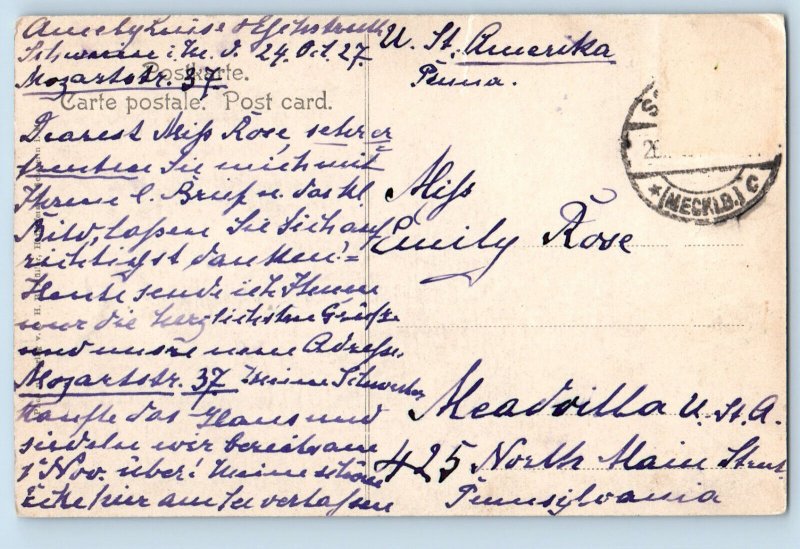 Schwerin i. M. d. 24. Oct. 27.
Mozartstr. 37
Postkarte.
Carte postale. Post card.
Dearest Miss Rose, sehr er
freuten Sie mich mit
Ihrem l. Brief u. das kl.
Bild, laßen Sie Sich auf
richtigst danken! =
Heute sende ich Ihnen
nur die herzlichsten Grüße
und unsre neue Adresse,
Mozartstr. 37. Meine Schwester
kaufte das Haus und
siedeln wir bereits am
1 Nov. über! Meine schöne
Ecke hier am See verlaßen
U. St. Amerika
Penna.
Miss
Emily Rose
Meadvilla U. St. A.
425 North Main Street
Pennsylvania
S
26
* (MECKLB.) C